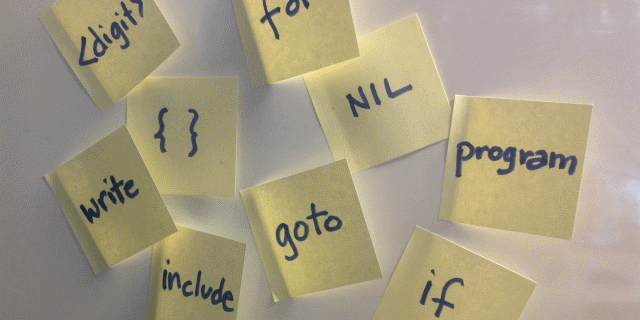 <digit>
for
NIL
{ }
program
write
goto
include
if